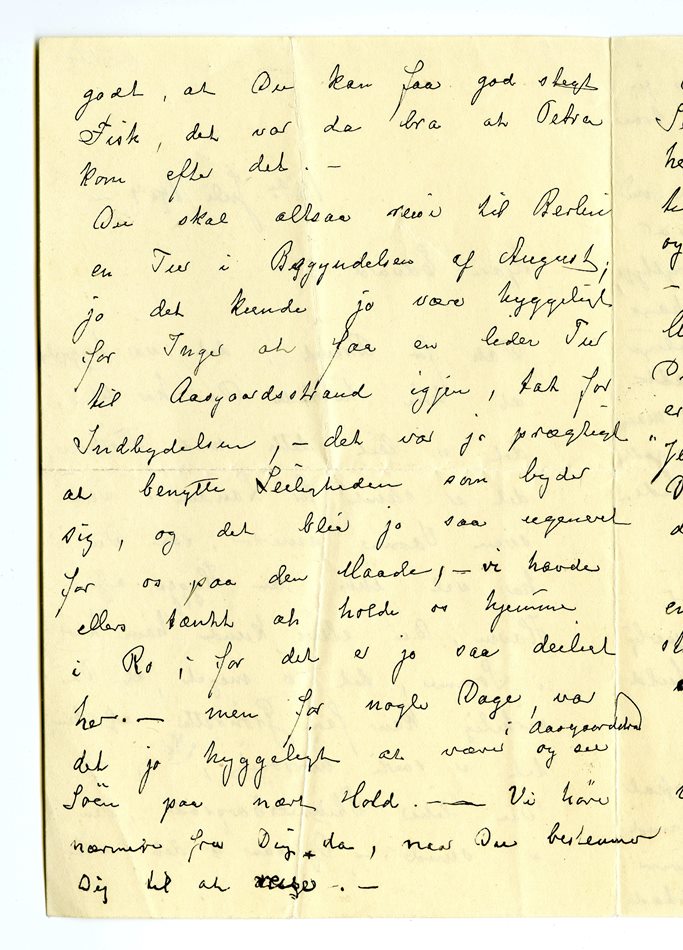 godt, at Du kan faa god stegt
Fisk, det var da bra at Petra
kom efter det. —
Du skal altsaa reise til Berlin
en Tur i Begyndelsen af August;
jo det kunde jo være hyggeligt
for Inger at faa en liden Tur
til Aasgaardsstrand igjen, tak for
Indbydelsen, — det var jo prægtigt
at benytte Leiligheden som byder
sig, og det blir jo saa ugenert
for os paa den Maade, — vi havde
ellers tænkt at holde os hjemme
i Ro, for det er jo saa deiligt
her. — men for nogle Dage, var
det jo hyggeligt at være i Aasgaardstrand og see
Söen paa nært Hold. — Vi hörer
nærmere fra Dig da, naar Du bestemmer
Dig til at reise. —